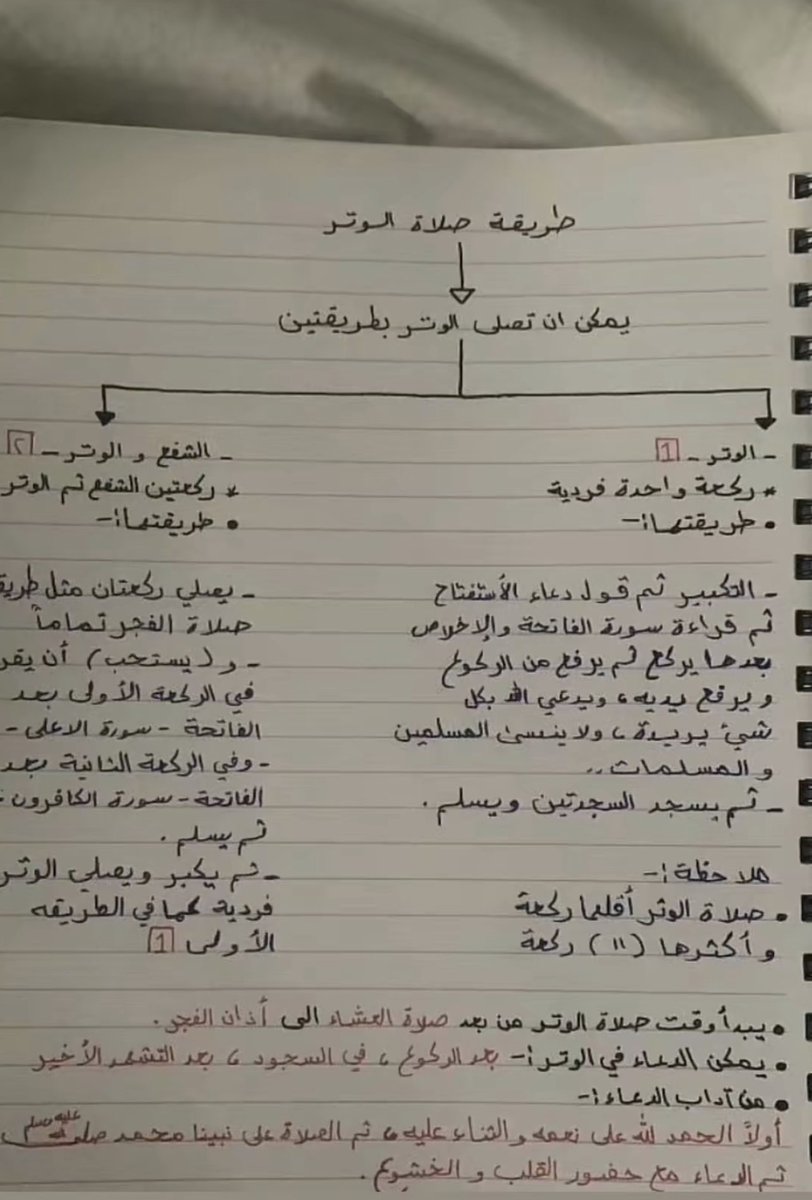 طريقة صلاة الوتر
يمكن ان تصلى الوتر بطريقتين
- الوتر - 1
* ركعة واحدة فردية
• طريقتها :-
- التكبير ثم قول دعاء الأستفتاح
ثم قراءة سورة الفاتحة والإخلاص
بعدها يركع ثم يرفع من الركوع
ويرفع يديه، ويدعي الله بكل
شيئ يريدة، ولا ينسى المسلمين
والمسلمات..
- ثم يسجد السجدتين ويسلم.
ملاحظة :-
• صلاة الوتر أقلها ركعة
وأكثرها (١١) ركعة
- الشفع و الوتر - ٢
* ركعتين الشفع ثم الوتر
• طريقتها :-
- يصلي ركعتان مثل
صلاة الفجر تماماً
- و (يستحب) أن
في الركعة الأولى بعد
الفاتحة - سورة الاعلى -
- وفي الركعة الثانية بعد
الفاتحة - سورة الكافرون -
ثم يسلم.
- ثم يكبر ويصلي الوتر
فردية كما في الطريقه
الأولى 1
• يبدأ وقت صلاة الوتر من بعد صلاة العشاء الى أذان الفجر.
• يمكن الدعاء في الوتر :- بعد الركوع، في السجود، بعد التشهد الأخير
• من آداب الدعاء :-
أولاً الحمد لله على نعمه والثناء عليه، ثم الصلاة على نبينا محمد صلى الله عليه وسلم
ثم الدعاء مع حضور القلب و الخشوع.